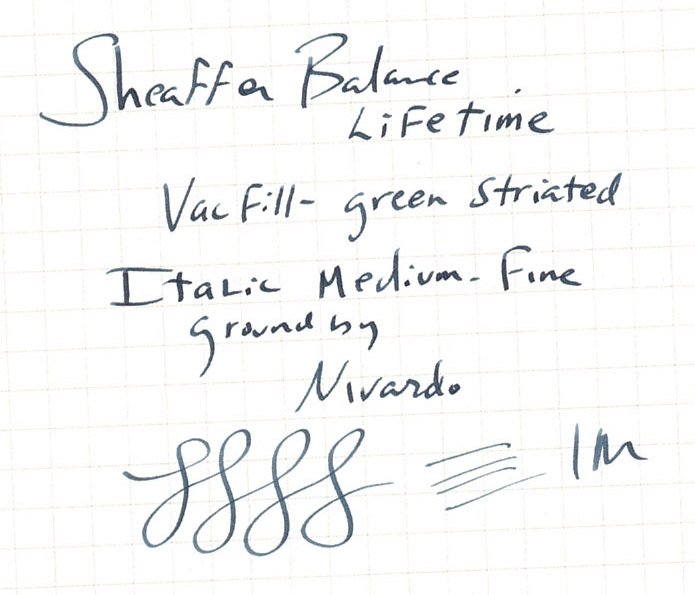 Sheaffer Balance
Lifetime
Vac Fill- green striated
Italic Medium-Fine
ground by
Nivardo
IM